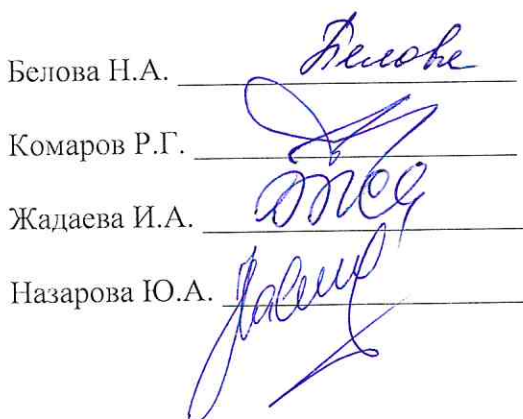 Белова Н.А. Белова
Комаров Р.Г.
Жадаева И.А.
Назарова Ю.А.